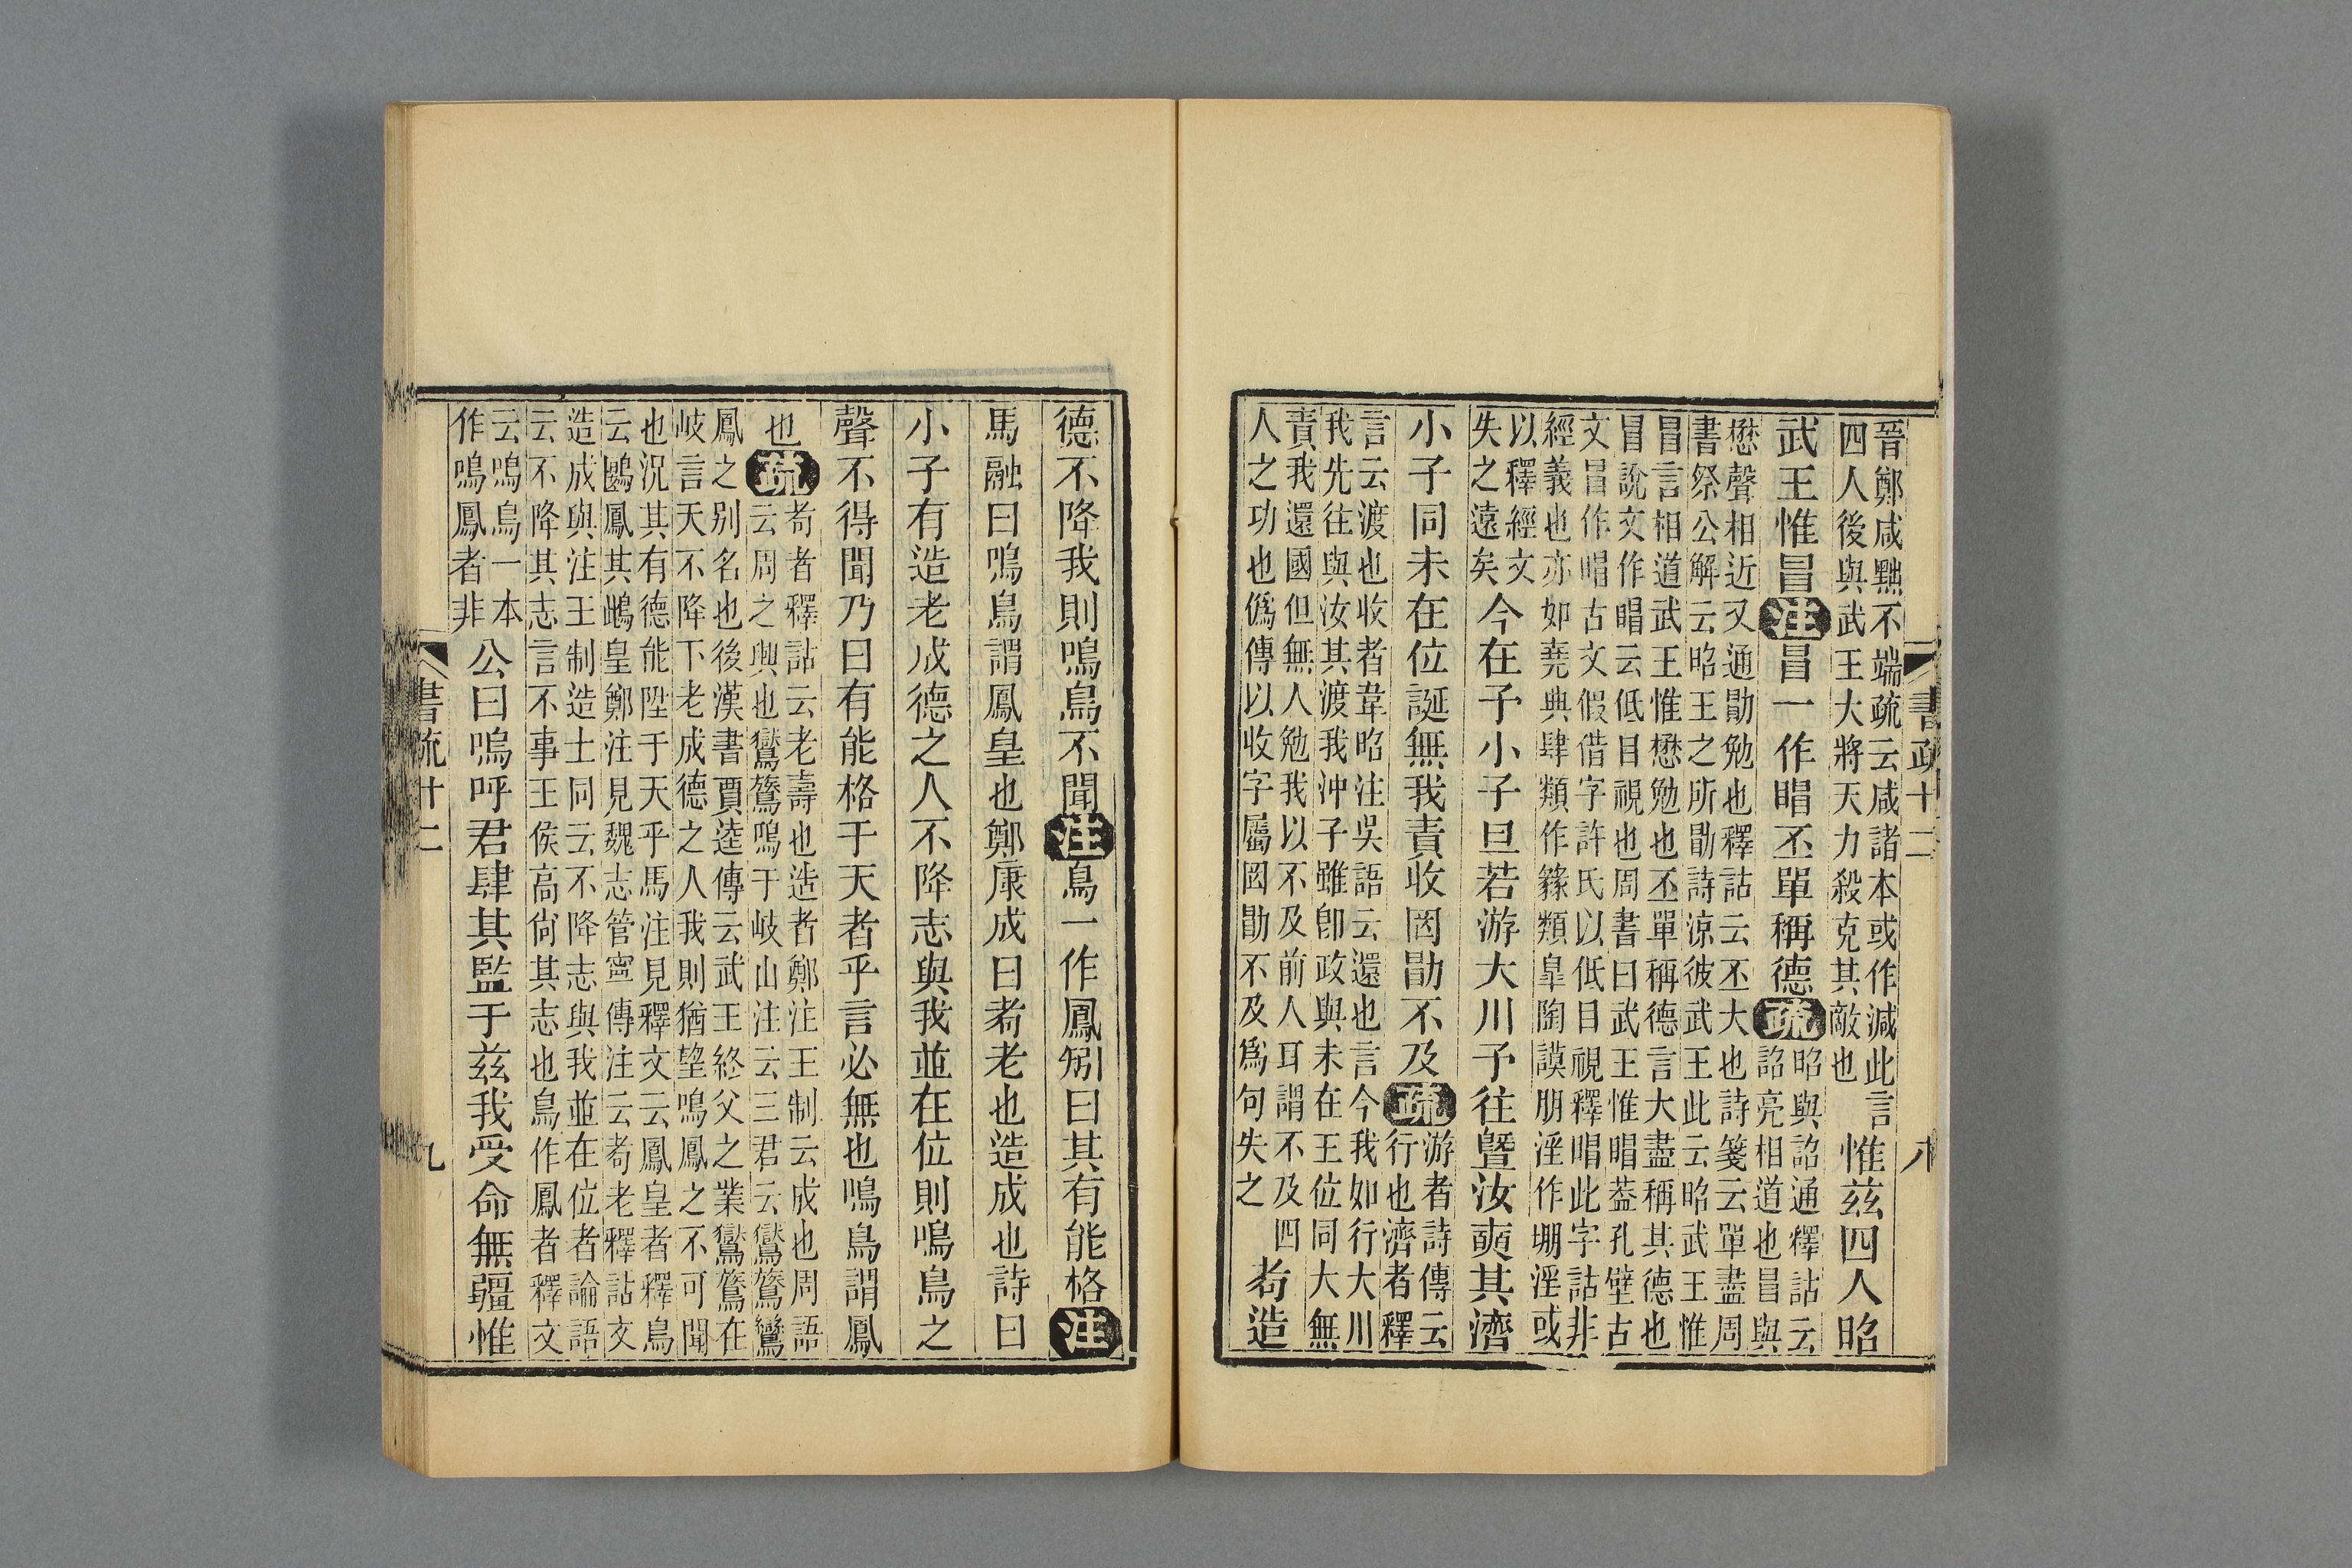 書疏十二
八
晉鄭咸黜不端疏云咸諸本或作減此言
四人後與武王大將天力殺克其敵也
惟茲四人昭
武王惟冒注冒一作瑁丕單稱德疏
昭與詔通釋詁云
詔亮相道也冒與
懋聲相近又通勖勉也釋詁云丕大也詩箋云單盡周
書祭公解云昭王之所勖詩涼彼武王此云昭武王惟
冒言相道武王惟懋勉也丕單稱德言大盡稱其德也
冒說文作瑁云低目視也周書曰武王惟瑁葢孔壁古
文冒作瑁古文假借字許氏以低目視釋瑁此字詁非
經義也亦如堯典肆類作䌛類臯陶謨朋淫作堋淫或
以釋經文
失之遠矣
今在予小子旦若游大川予往曁汝奭其濟
小子同未在位誕無我責收罔勖不及疏
游者詩傳云
行也濟者釋
言云渡也收者韋昭注吳語云還也言今我如行大川
我先往與汝其渡我沖子雖卽政與未在王位同大無
責我還國但無人勉我以不及前人耳謂不及四
人之功也僞傳以收字屬罔勖不及爲句失之
耇造
德不降我則鳴鳥不聞注鳥一作鳳矧曰其有能格注
馬融曰鳴鳥謂鳳皇也鄭康成曰耇老也造成也詩曰
小子有造老成德之人不降志與我並在位則鳴鳥之
聲不得聞乃曰有能格于天者乎言必無也鳴鳥謂鳳
也疏
耇者釋詁云老壽也造者鄭注王制云成也周語
云周之興也鸑鷟鳴于岐山注云三君云鸑鷟鸞
鳳之別名也後漢書賈逵傳云武王終父之業鸑鷟在
岐言天不降下老成德之人我則猶望鳴鳳之不可聞
也況其有德能陞于天乎馬注見釋文云鳳皇者釋鳥
云鶠鳳其鴟皇鄭注見魏志管寧傳注云耇老釋詁文
造成與注王制造士同云不降志與我並在位者論語
云不降其志言不事王侯高尙其志也鳥作鳳者釋文
云鳴鳥一本
作鳴鳳者非
公曰嗚呼君肆其監于茲我受命無疆惟
書疏十二
九